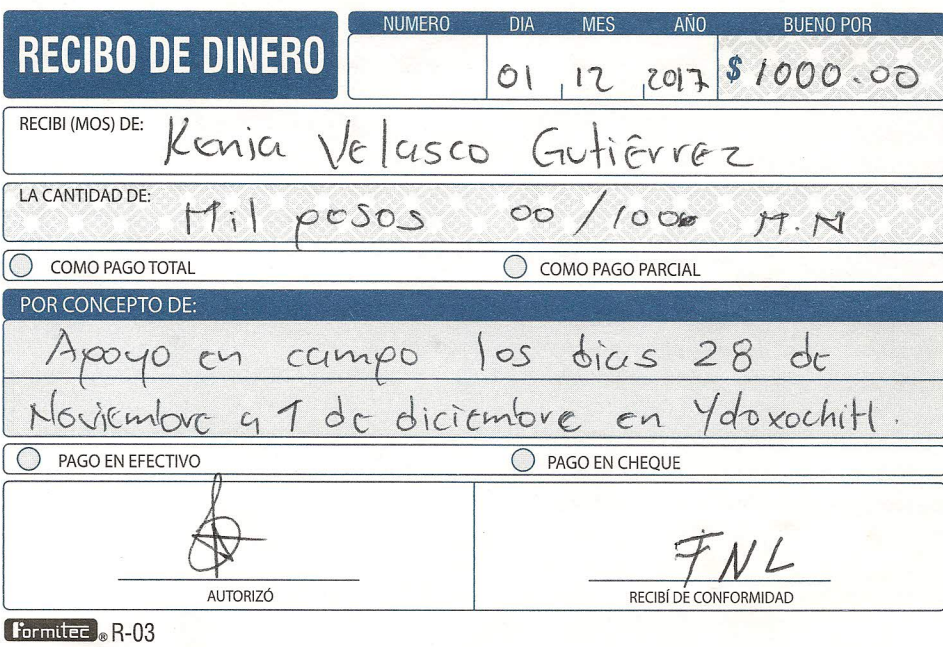 RECIBO DE DINERO
NUMERO DIA MES AÑO BUENO POR
01 12 2017 $ 1000.00
RECIBI (MOS) DE: Kenia Velasco Gutiérrez
LA CANTIDAD DE: Mil pesos 00/100 M.N
COMO PAGO TOTAL COMO PAGO PARCIAL
POR CONCEPTO DE:
Apoyo en campo los dias 28 de
Noviembre a 1 de diciembre en Ydoxochitl.
PAGO EN EFECTIVO PAGO EN CHEQUE
FNL
AUTORIZÓ RECIBÍ DE CONFORMIDAD
Formitec ® R-03